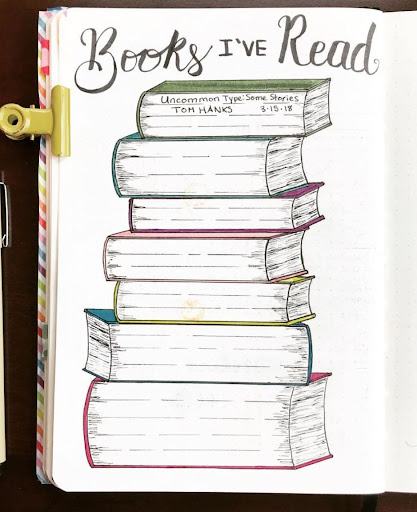 Books I'VE Read
Uncommon Type: Some Stories
TOM HANKS 3·15·18